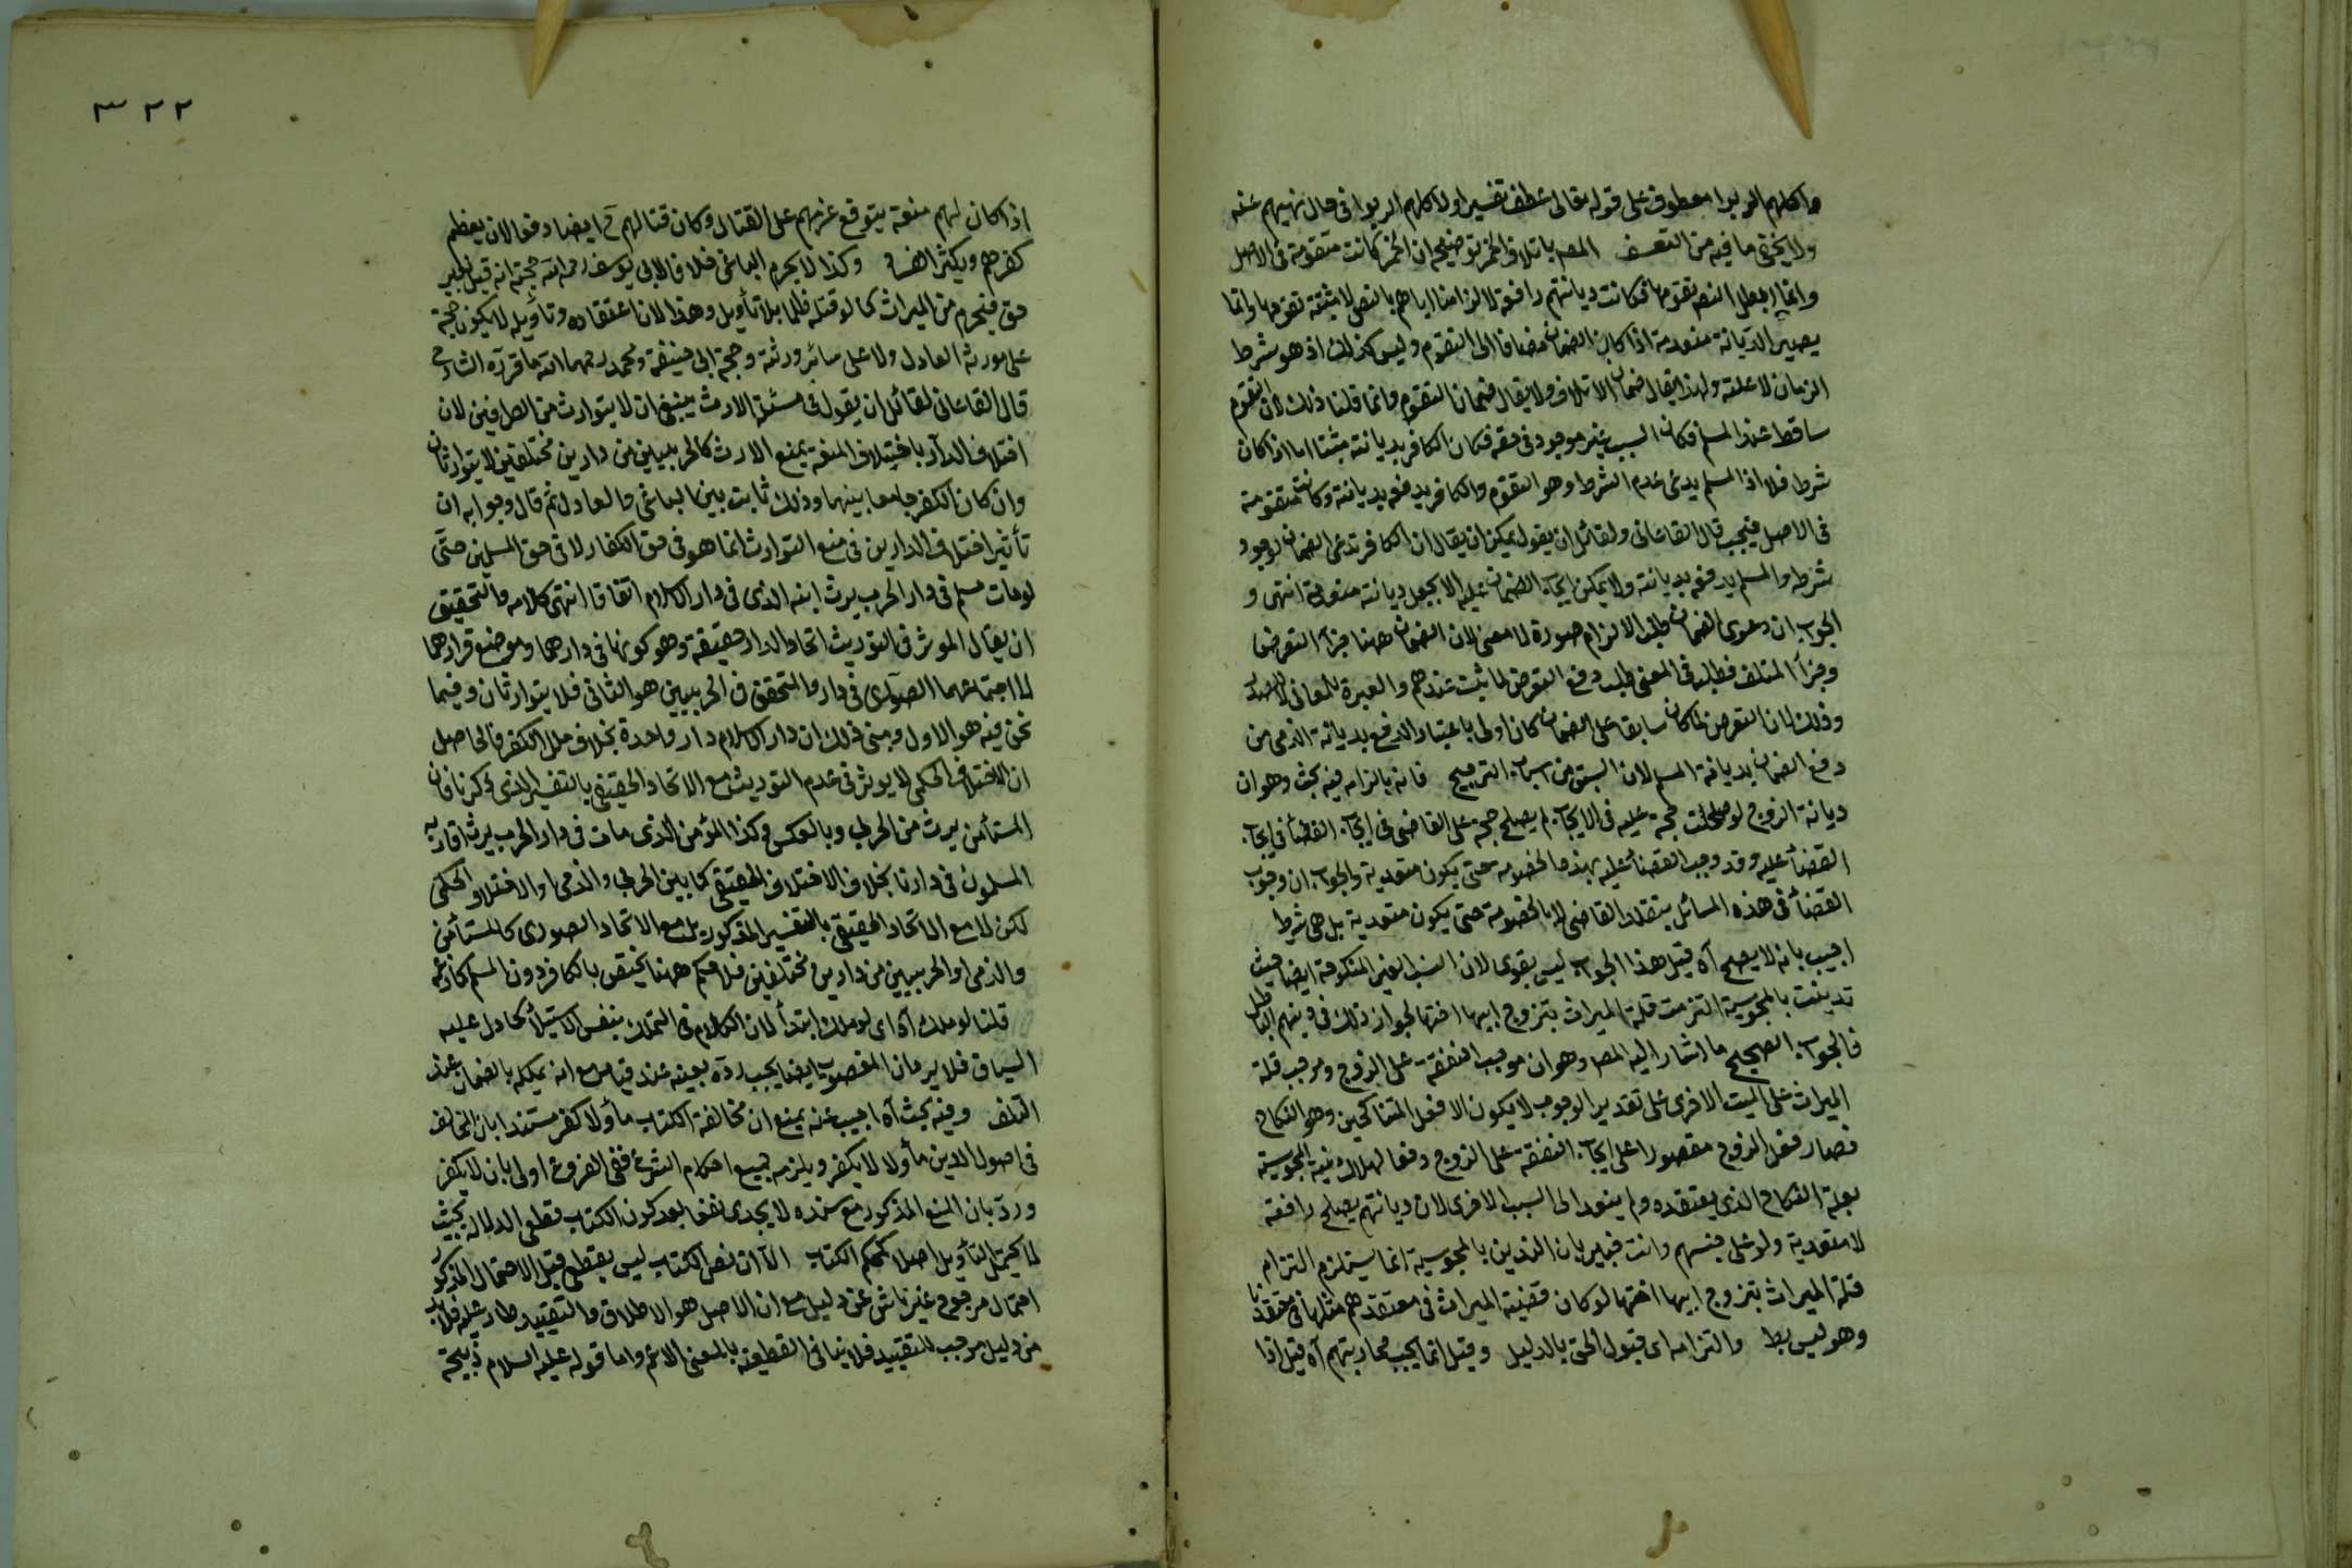 واكلهم الربوا معطوف على قوله تعالى عطف تفسير اولاكلهم الربوا فى حال نهيهم عنه
ولا يخفى ما فيه من التعسف المص باتلاف الخمر توضيحه ان الخمر كانت متقومة فى الاصل
وانما ابطل النص تقومها فكانت ديانتهم دافعة لالزامنا اياهم بالنص لا مثبتة تقومها وانما
يصير الديانة متعدية اذا كان الضمان مضافا الى التقوم وليس كذلك اذ هو شرط
الزمان لا علته ولهذا يقال ضمان الاتلاف ولا يقال ضمان التقوم وانما قلنا ذلك لان التقوم
ساقط عند المسلم فكان السبب غير موجود فى حقه فكان الكافر بديانته مثبتا اما اذا كان
شرطا فلا اذ المسلم يدعى عدم الشرط وهو التقوم والكافر يدفعه بديانته وكانت متقومة
فى الاصل فيجب قال القاءانى ولقائل ان يقول يمكن ان يقال ان الكافر يدعى الضمان لوجود
شرطه والمسلم يدفعه بديانته ولا يمكن ايجاب الضمان عليه الا بجعل ديانته متعدية انتهى و
الجواب ان دعوى الضمان طلب الالزام صورة لا معنى لان الضمان ههنا جزاء التعرض
وجزاء المتلف فطلبه فى المعنى طلب دفع التعرض لما ثبت عندهم والعبرة للمعانى
وذلك لان التعرض لما كان سابقا على الضمان كان اولى باعتبار الدفع بديانة الذمى من
دفع الضمان بديانة المسلم لان السبق من اسباب الترجيح فانه بالزامه فيه بحث وهو ان
ديانة الزوج لو صلحت حجة عليه فى الايجاب لم يصلح حجة على القاضى فى ايجاب القضاء فى ايجاب
القضاء عليه وقد وجب القضاء عليه بهذه الخصومة حتى يكون متعدية والجواب ان وجوب
القضاء فى هذه المسائل بتقلد القاضى لا بالخصومة حتى يكون متعدية بل هى شرط
اجيب بانه لا يصح آه قيل هذا الجواب ليس بقوى لان البنت الغير المنكوحة ايضا حيث
تدينت بالمجوسية التزمت قلة الميراث بتزوج ابيها اختها لجواز ذلك فى دينهم الباطل
فالجواب الصحيح ما اشار اليه المص وهو ان موجب النفقة على الزوج وموجب قلة
الميراث على البنت الاخرى على تقدير الوجوب لا يكون الا فعل المتناكحين وهو النكاح
فصار فعل الزوج مقصورا على ايجاب النفقة على الزوج دفعا لهلاك بنية المجوسية
بعلة النكاح الذى يعتقده ولم يتعد الى السبب الاخرى لان ديانتهم يصلح دافعة
لا متعدية ولو على جنسهم وانت خبير بان التدين بالمجوسية انما يستلزم التزام
قلة الميراث بتزوج ابيها اختها لو كان قضية الميراث فى معتقدهم مثلها فى معتقدنا
وهو ليس بط والتزامه اى قبول الحق بالدليل وقيل انما يجب محاربتهم آه قيل اذا
٣٢٢
اذا كان لهم منعة يتوقع عزمهم على القتال وكان قتالهم ح ايضا دفعا لان يعظم
كفرهم ويكثر الفساد وكذا لا يحرم الباغى خلافا لابى يوسف رحمه الله حجته انه قتيل بغير
حق فيحرم من الميراث كما لو قتله ظلما بلا تأويل وهذا لان اعتقاده وتأويله لا يكون حجة
على مورثه العادل ولا على سائر ورثته وحجة ابى حنيفة ومحمد رحمهما الله ما قرره الشارح
قال القاءانى لقائل ان يقول فى مسئلة الارث ينبغى ان لا يتوارث من الطرفين لان
اختلاف الدار باختلاف المنعة يمنع الارث كالحربيين من دارين مختلفتين لا يتوارثان
وان كان الكفر جامعا بينهما وذلك ثابت بين الباغى والعادل ثم قال وجوابه ان
تأثير اختلاف الدارين فى منع التوارث انما هو فى حق الكفار لا فى حق المسلمين حتى
لو مات مسلم فى دار الحرب يرث ابنه الذى فى دار الاسلام اتفاقا انتهى كلامه والتحقيق
ان يقال الموثر فى التوريث اتحاد الدار حقيقة وهو كونهما فى دارهما وموضع قرارهما
لا اجتماعهما الصورى فى دار والمتحقق فى الحربيين هو الثانى فلا يتوارثان وفيما
نحن فيه هو الاول ومبنى ذلك ان دار الاسلام دار واحدة بخلاف ملل الكفر فالحاصل
ان الاختلاف الحكمى لا يوثر فى عدم التوريث مع الاتحاد الحقيقى بالتفسير الذى ذكرنا فان
المستأمن يرث من الحربى وبالعكس وكذا المؤمن الذى مات فى دار الحرب يرث اقاربه
المسلمون فى دارنا بخلاف الاختلاف الحقيقى كما بين الحربى والذمى او الاختلاف الحكمى
لكن لا مع الاتحاد الحقيقى بالتفسير المذكور بل مع الاتحاد الصورى كالمستأمن
والذمى او الحربيين من دارين مختلفين فلا حكم ههنا يختص بالكافر دون المسلم كما زعمه
قلنا لو ملك آه اى لو ملك ابتداء لان الكلام فى التملك بنفس الاستيلاء كما دل عليه
السياق فلا يرد ان المغصوب ايضا يجب رده بعينه عند قيامه مع انه يملكه بالضمان عند
التلف وفيه بحث آه اجيب عنه بمنع ان مخالفة الكتاب مأولا كفر مستندا بان المخالف
فى اصول الدين مأولا لا يكفر ويلزمه جميع احكام الشرع ففى الفروع اولى بان لا يكفر
ورد بان المنع المذكور مع سنده لا يجدى نفعا بعد كون الكتاب قطعى الدلالة بحيث
لا يحتمل التأويل اصلا كمحكم الكتاب الا ان نص الكتاب ليس بقطعى قيل الاحتمال المذكور
احتمال مرجوح غير ناش عن دليل مع ان الاصل هو الاطلاق والتقييد طار عليه فلا بد
من دليل موجب للتقييد فلا ينافى القطعية بالمعنى الاعم واما قوله عليه السلام ذبيحة